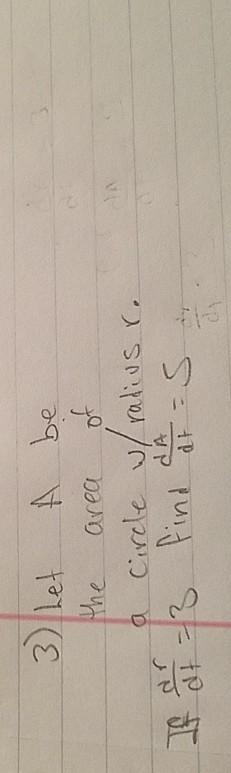 3) Let A be
the area of
a circle w/ radius r.
If dr/dt = 3 find dA/dt = 5